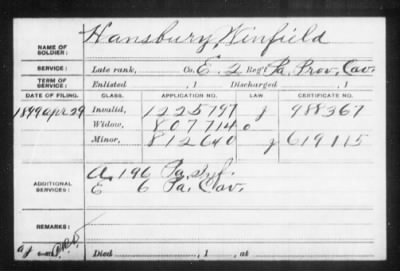 NAME OF SOLDIER: Hansbury, Winfield
SERVICE: Late rank, Co. E. 2 Reg't Pa. Prov. Cav.
TERM OF SERVICE: Enlisted , 1 Discharged , 1
DATE OF FILING. CLASS. APPLICATION NO. LAW CERTIFICATE NO.
1899 Apr 29 Invalid, 1225797 J 988367
Widow, 807714 0
Minor, 812640 J 619115
ADDITIONAL SERVICES: A. 196 Pa. Inf.
E 6 Pa. Cav.
REMARKS:
Died , 1 , at